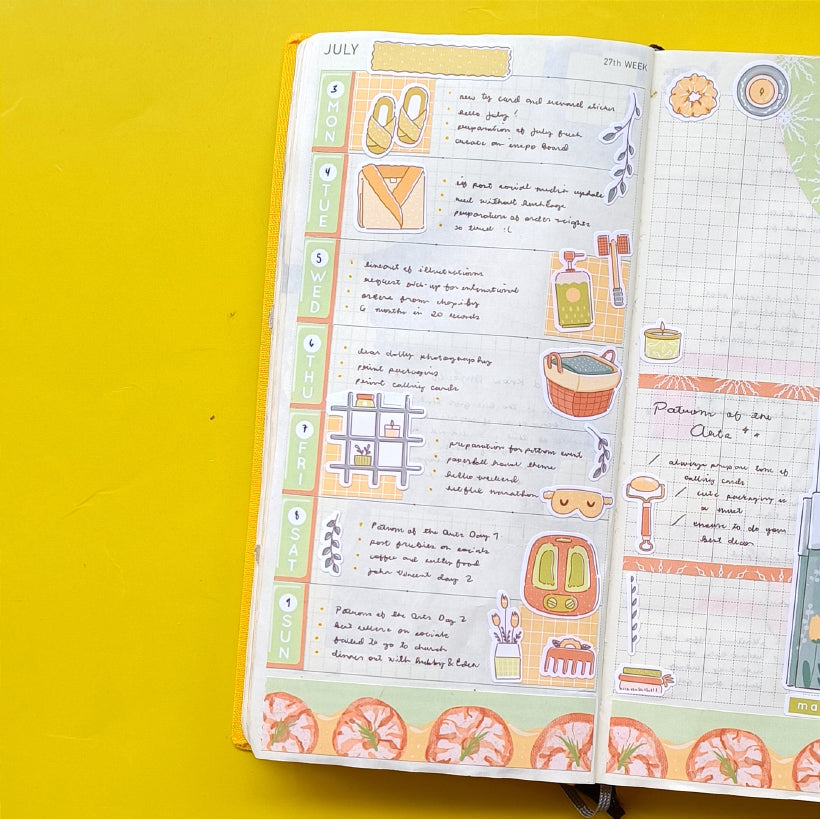 JULY
27th WEEK
3
MON
hello july!
preparation of july
create an inspo board
4
TUE
post social media update
without
preparation of order
so tired :(
5
WED
lineout of illustrations
request pick-up for international
orders from
6 months in 20 seconds
6
THU
dear dolly photography
print packaging
print calling cards
7
FRI
preparation for patrom event
theme
hello weekend
netflix marathon
8
SAT
Patrom of the Arts Day 1
post freebies on socials
coffee and food
john Vincent day 2
9
SUN
Patrom of the Arts Day 2
on socials
failed to go to church
dinner out with hubby & Eden
Patrom of the
Arts
always prepare tons of
calling cards
cute packaging is
a must
ensure to do your
best decor
ma